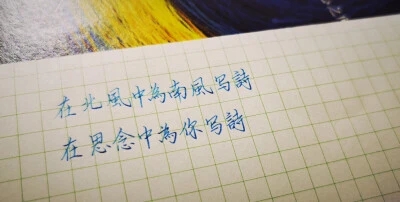 在北風中為南風写詩
在思念中為你写詩